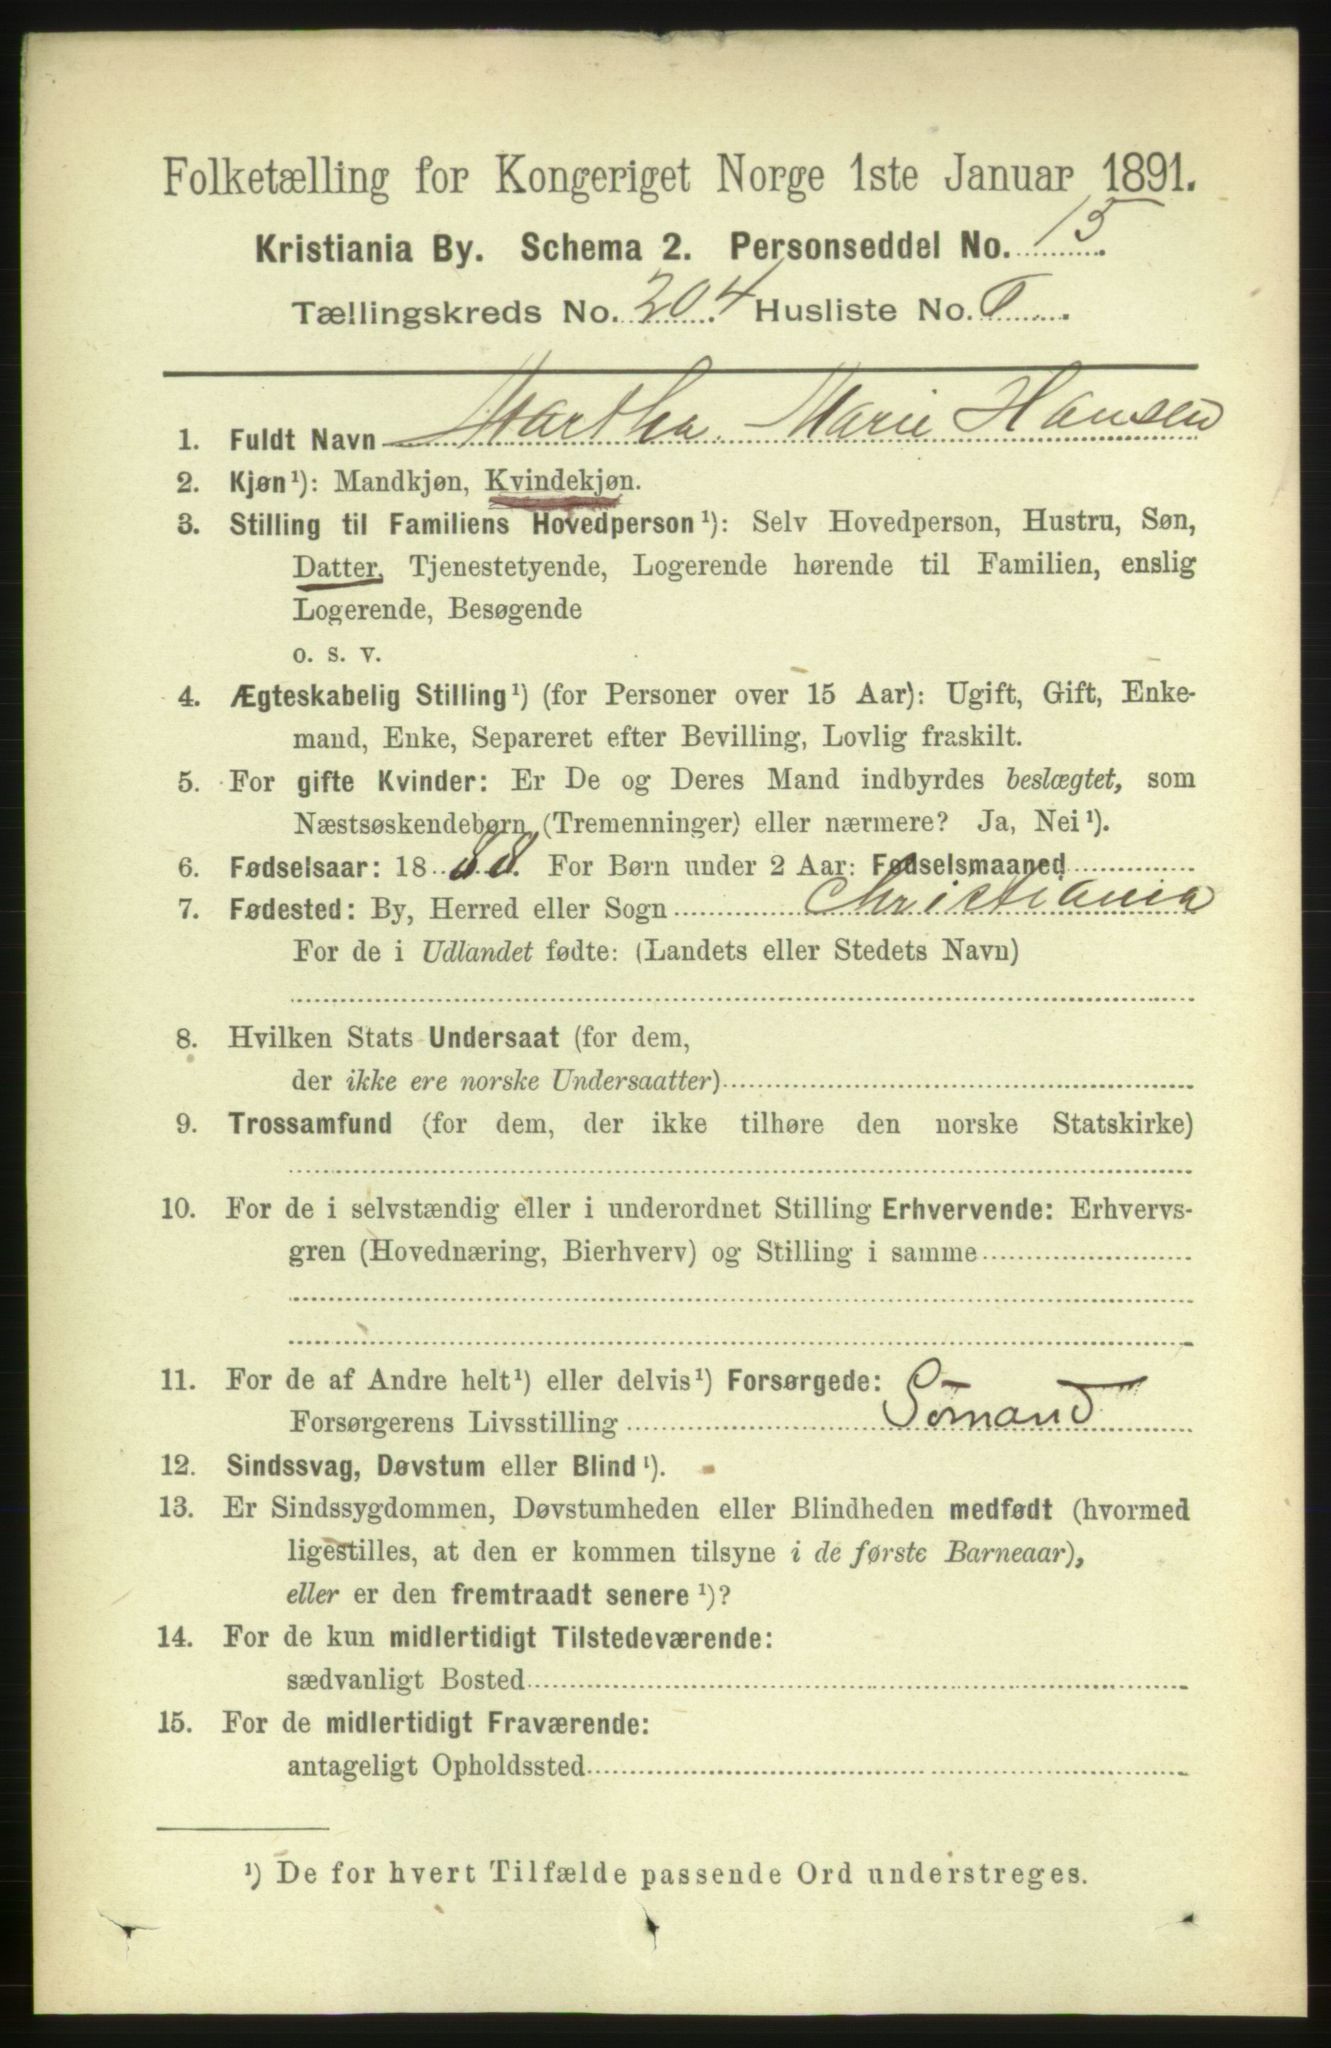 Folketælling for Kongeriget Norge 1ste Januar 1891.
Kristiania By. Schema 2. Personseddel No. 15.
Tællingskreds No. 204. Husliste No.
1. Fuldt Navn Martha Marie Hansen
2. Kjøn¹): Mandkjøn, Kvindekjøn.
3. Stilling til Familiens Hovedperson¹): Selv Hovedperson, Hustru, Søn,
Datter, Tjenestetyende, Logerende hørende til Familien, enslig
Logerende, Besøgende
o. s. v.
4. Ægteskabelig Stilling¹) (for Personer over 15 Aar): Ugift, Gift, Enke-
mand, Enke, Separeret efter Bevilling, Lovlig fraskilt.
5. For gifte Kvinder: Er De og Deres Mand indbyrdes beslægtet, som
Næstsøskendebørn (Tremenninger) eller nærmere? Ja, Nei¹).
6. Fødselsaar: 1888. For Børn under 2 Aar: Fødselsmaaned
7. Fødested: By, Herred eller Sogn Christiania
For de i Udlandet fødte: (Landets eller Stedets Navn)
8. Hvilken Stats Undersaat (for dem,
der ikke ere norske Undersaatter)
9. Trossamfund (for dem, der ikke tilhøre den norske Statskirke)
10. For de i selvstændig eller i underordnet Stilling Erhvervende: Erhvervs-
gren (Hovednæring, Bierhverv) og Stilling i samme
11. For de af Andre helt¹) eller delvis¹) Forsørgede:
Forsørgerens Livsstilling Sømand
12. Sindssvag, Døvstum eller Blind¹).
13. Er Sindssygdommen, Døvstumheden eller Blindheden medfødt (hvormed
ligestilles, at den er kommen tilsyne i de første Barneaar),
eller er den fremtraadt senere¹)?
14. For de kun midlertidigt Tilstedeværende:
sædvanligt Bosted
15. For de midlertidigt Fraværende:
antageligt Opholdssted
¹) De for hvert Tilfælde passende Ord understreges.